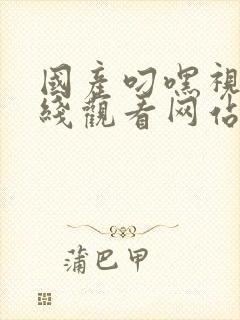 國產叼嘿視
綫觀看网佔
蒲巴甲